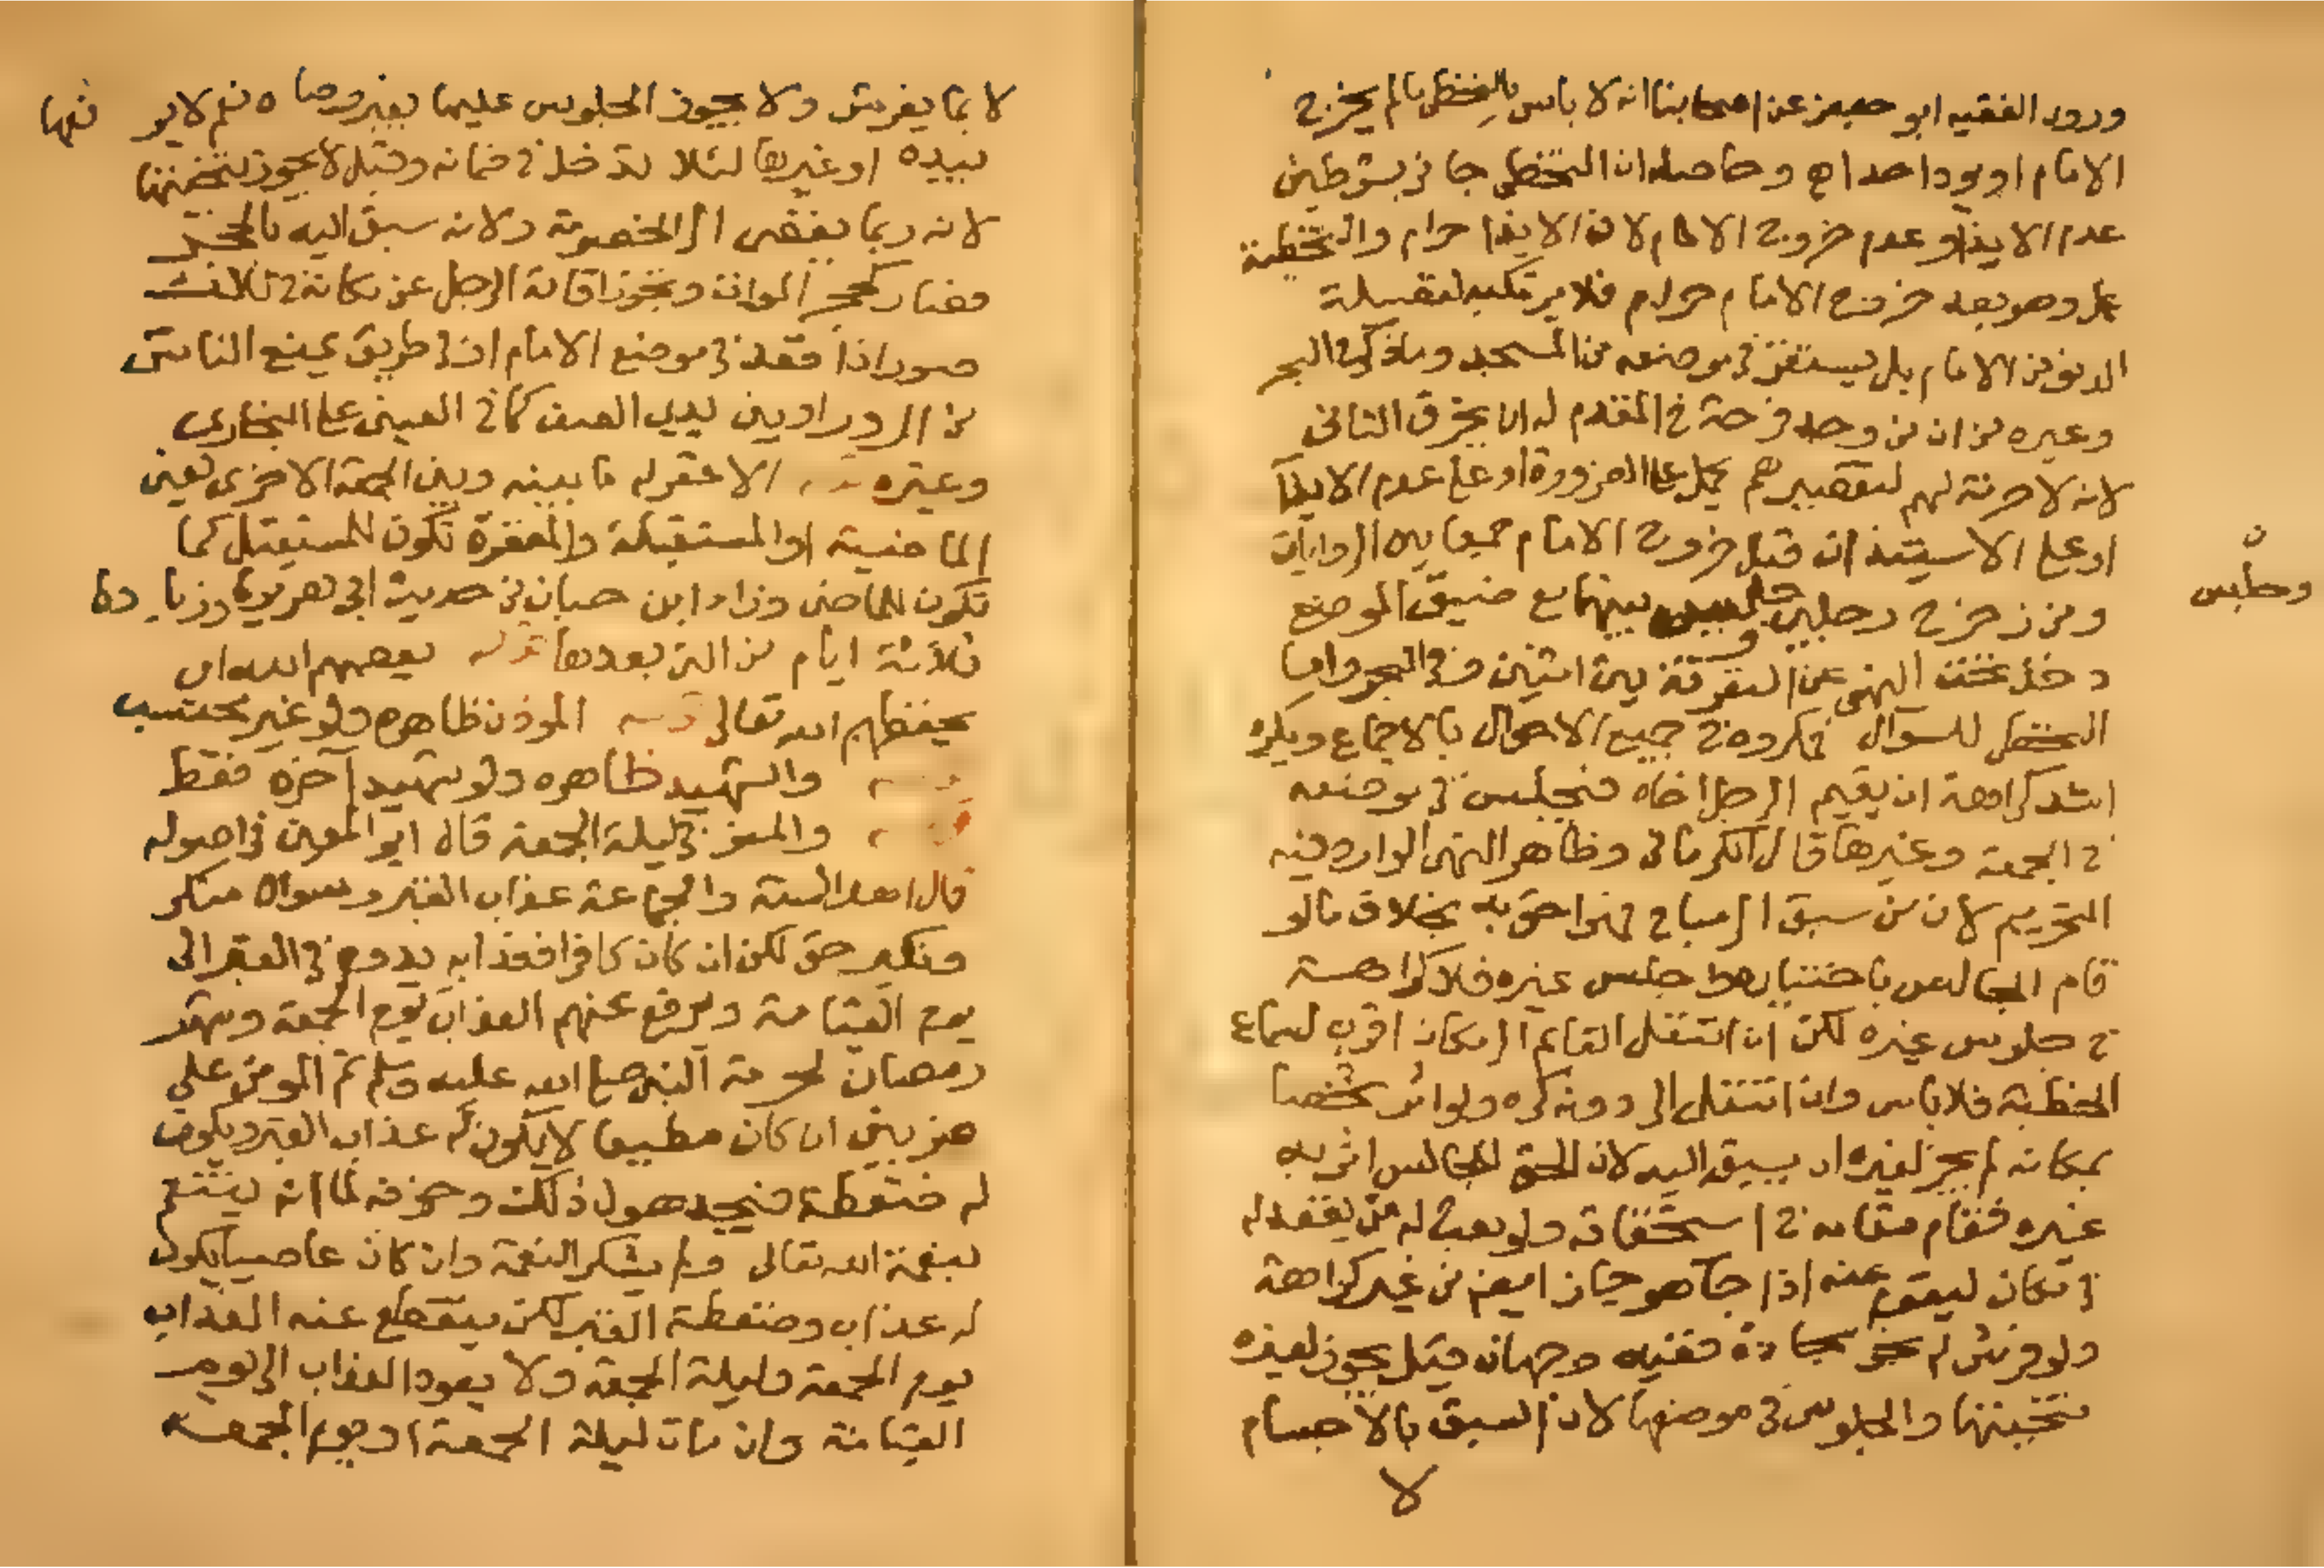 ورود الفقيه ابو جعفر عن اصحابنا انه لا باس بالتخطي ما لم يخرج
الامام او يوذ احدا اه وحاصله ان التخطي جائز بشرطين
عدم الايذا وعدم خروج الامام لان الايذا حرام والتخطية
عمل وهو بعد خروج الامام حرام فلا يرتكبه لفضيلة
الدنو من الامام بل يستقر في موضعه من المسجد وما ذكره في البحر
وغيره من ان من وجد فرجة في المقدم له ان يخرق الثاني
لانه لا حرمة لهم لتقصيرهم يحمل على الضرورة او على عدم الايذا
او على الاستيذان قبل خروج الامام جمعا بين الروايات
ومن زحزح رجلين وجلس بينهما مع ضيق الموضع
دخل تحت النهي عن التفرقة بين اثنين وفي البحر واما
التخطي للسوال فمكروه في جميع الاحوال بالاجماع ويكره
اشد كراهة ان يقيم الرجل اخاه فيجلس في موضعه
في الجمعة وغيرها قال الكرماني وظاهر النهي الوارد فيه
التحريم لان من سبق الى مباح فهو احق به بخلاف ما لو
قام الجالس باختياره وجلس غيره فلا كراهة
في جلوس غيره لكن ان انتقل القايم الى مكان اقرب لسماع
الخطبة فلا باس وان انتقل الى دونه كره ولو اثر شخصا
بمكانه لم يجز لغيره ان يسبق اليه لان الحق للجالس اثر به
غيره فقام مقامه في استحقاقه ولو بعث له من يقعد له
في مكان ليقوم عنه اذا جآ هو جاز ايضا من غير كراهة
ولو فرش له نحو سجادة ففيه وجهان قيل يجوز لغيره
تنحيتها والجلوس في موضعها لان السبق بالاجسام
لا
وجلس
لا بما يفرش ولا يجوز الجلوس عليها بغير رضاه نعم لا يرفعها
بيده او غيرها لئلا تدخل في ضمانه وقيل لا يجوز تنحيتها
لانه ربما يفضي الى الخصومة ولانه سبق اليه بالحجر
فصار كحجر الموات ويجوز اقامة الرجل عن مكانه في ثلاث
صور اذا قعد في موضع الامام او في طريق يمنع الناس
من المرور او بين يدي الصف كما في العيني على البخاري
وغيره قوله الا غفر له ما بينه وبين الجمعة الاخرى يعني
الماضية او المستقبلة والمغفرة تكون للمستقبل كما
تكون للماضي وزاد ابن حبان من حديث ابي هريرة وزيادة
ثلاثة ايام من التي بعدها قوله يعصهم الله اي
يحفظهم الله تعالى قوله الموذن ظاهره ولو غير محتسب
قوله والشهيد ظاهره ولو شهيد آخرة فقط
قوله والمتو في ليلة الجمعة قال ابو المعين في اصوله
قال اهل السنة والجماعة عذاب القبر وسوال منكر
ونكير حق لكن ان كان كافرا فعذابه يدوم في القبر الى
يوم القيامة ويرفع عنهم العذاب يوم الجمعة وشهر
رمضان لحرمة النبي صلى الله عليه وسلم ثم المومن على
ضربين ان كان مطيعا لا يكون له عذاب القبر ويكون
له ضغطة فيجد هول ذلك وخوفه لما انه يتنعم
بنعمة الله تعالى ولم يشكر النعمة وان كان عاصيا يكون
له عذاب وضغطة القبر لكن ينقطع عنه العذاب
يوم الجمعة وليلة الجمعة ولا يعود العذاب الى يوم
القيامة وان مات ليلة الجمعة او يوم الجمعة